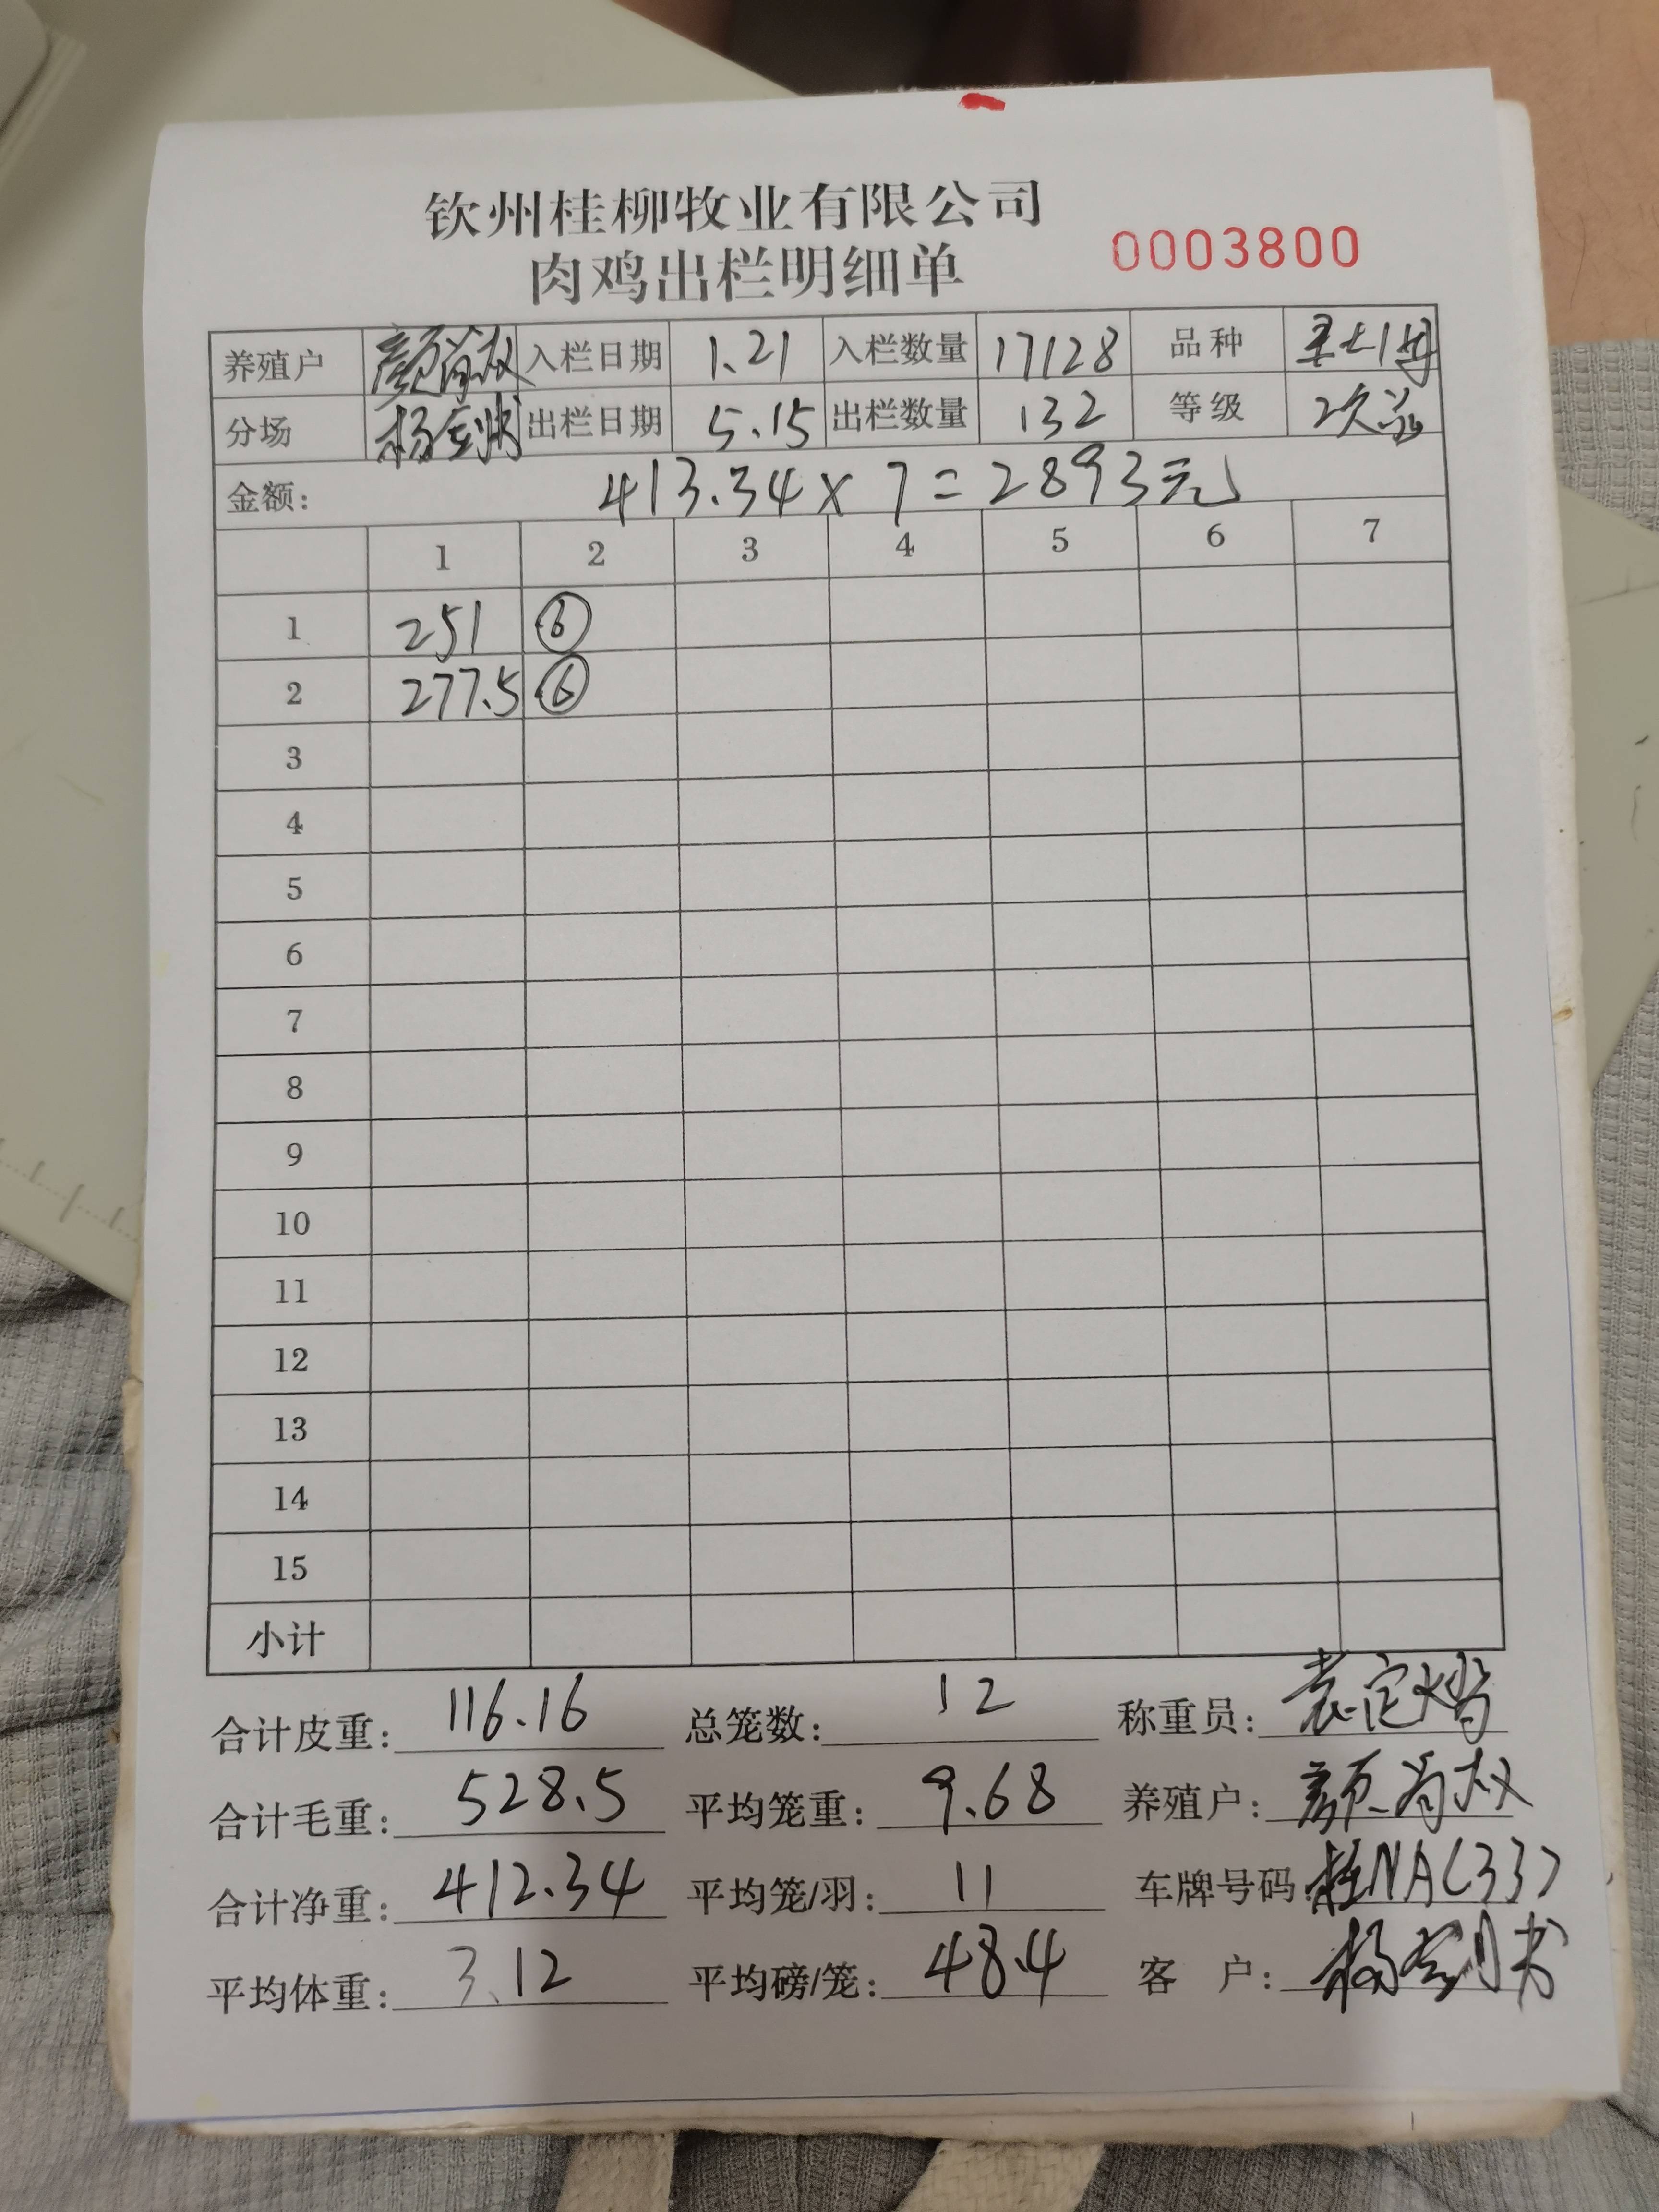 钦州桂柳牧业有限公司
肉鸡出栏明细单 0003800
养殖户 颜尚权 入栏日期 1.21 入栏数量 17128 品种
分场 杨 出栏日期 5.15 出栏数量 132 等级 2次
金额: 413.34 x 7 = 2893元
1 2 3 4 5 6 7
1 251 ⑥
2 277.5 ⑥
3
4
5
6
7
8
9
10
11
12
13
14
15
小计
合计皮重: 116.16 总笼数: 12 称重员: 袁定
合计毛重: 528.5 平均笼重: 9.68 养殖户: 颜尚权
合计净重: 412.34 平均笼/羽: 11 车牌号码:
平均体重: 3.12 平均磅/笼: 48.4 客 户: 杨